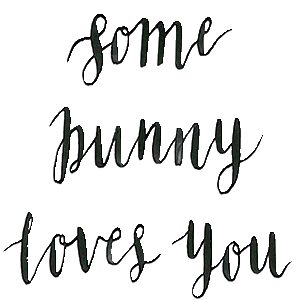 some
bunny
loves you